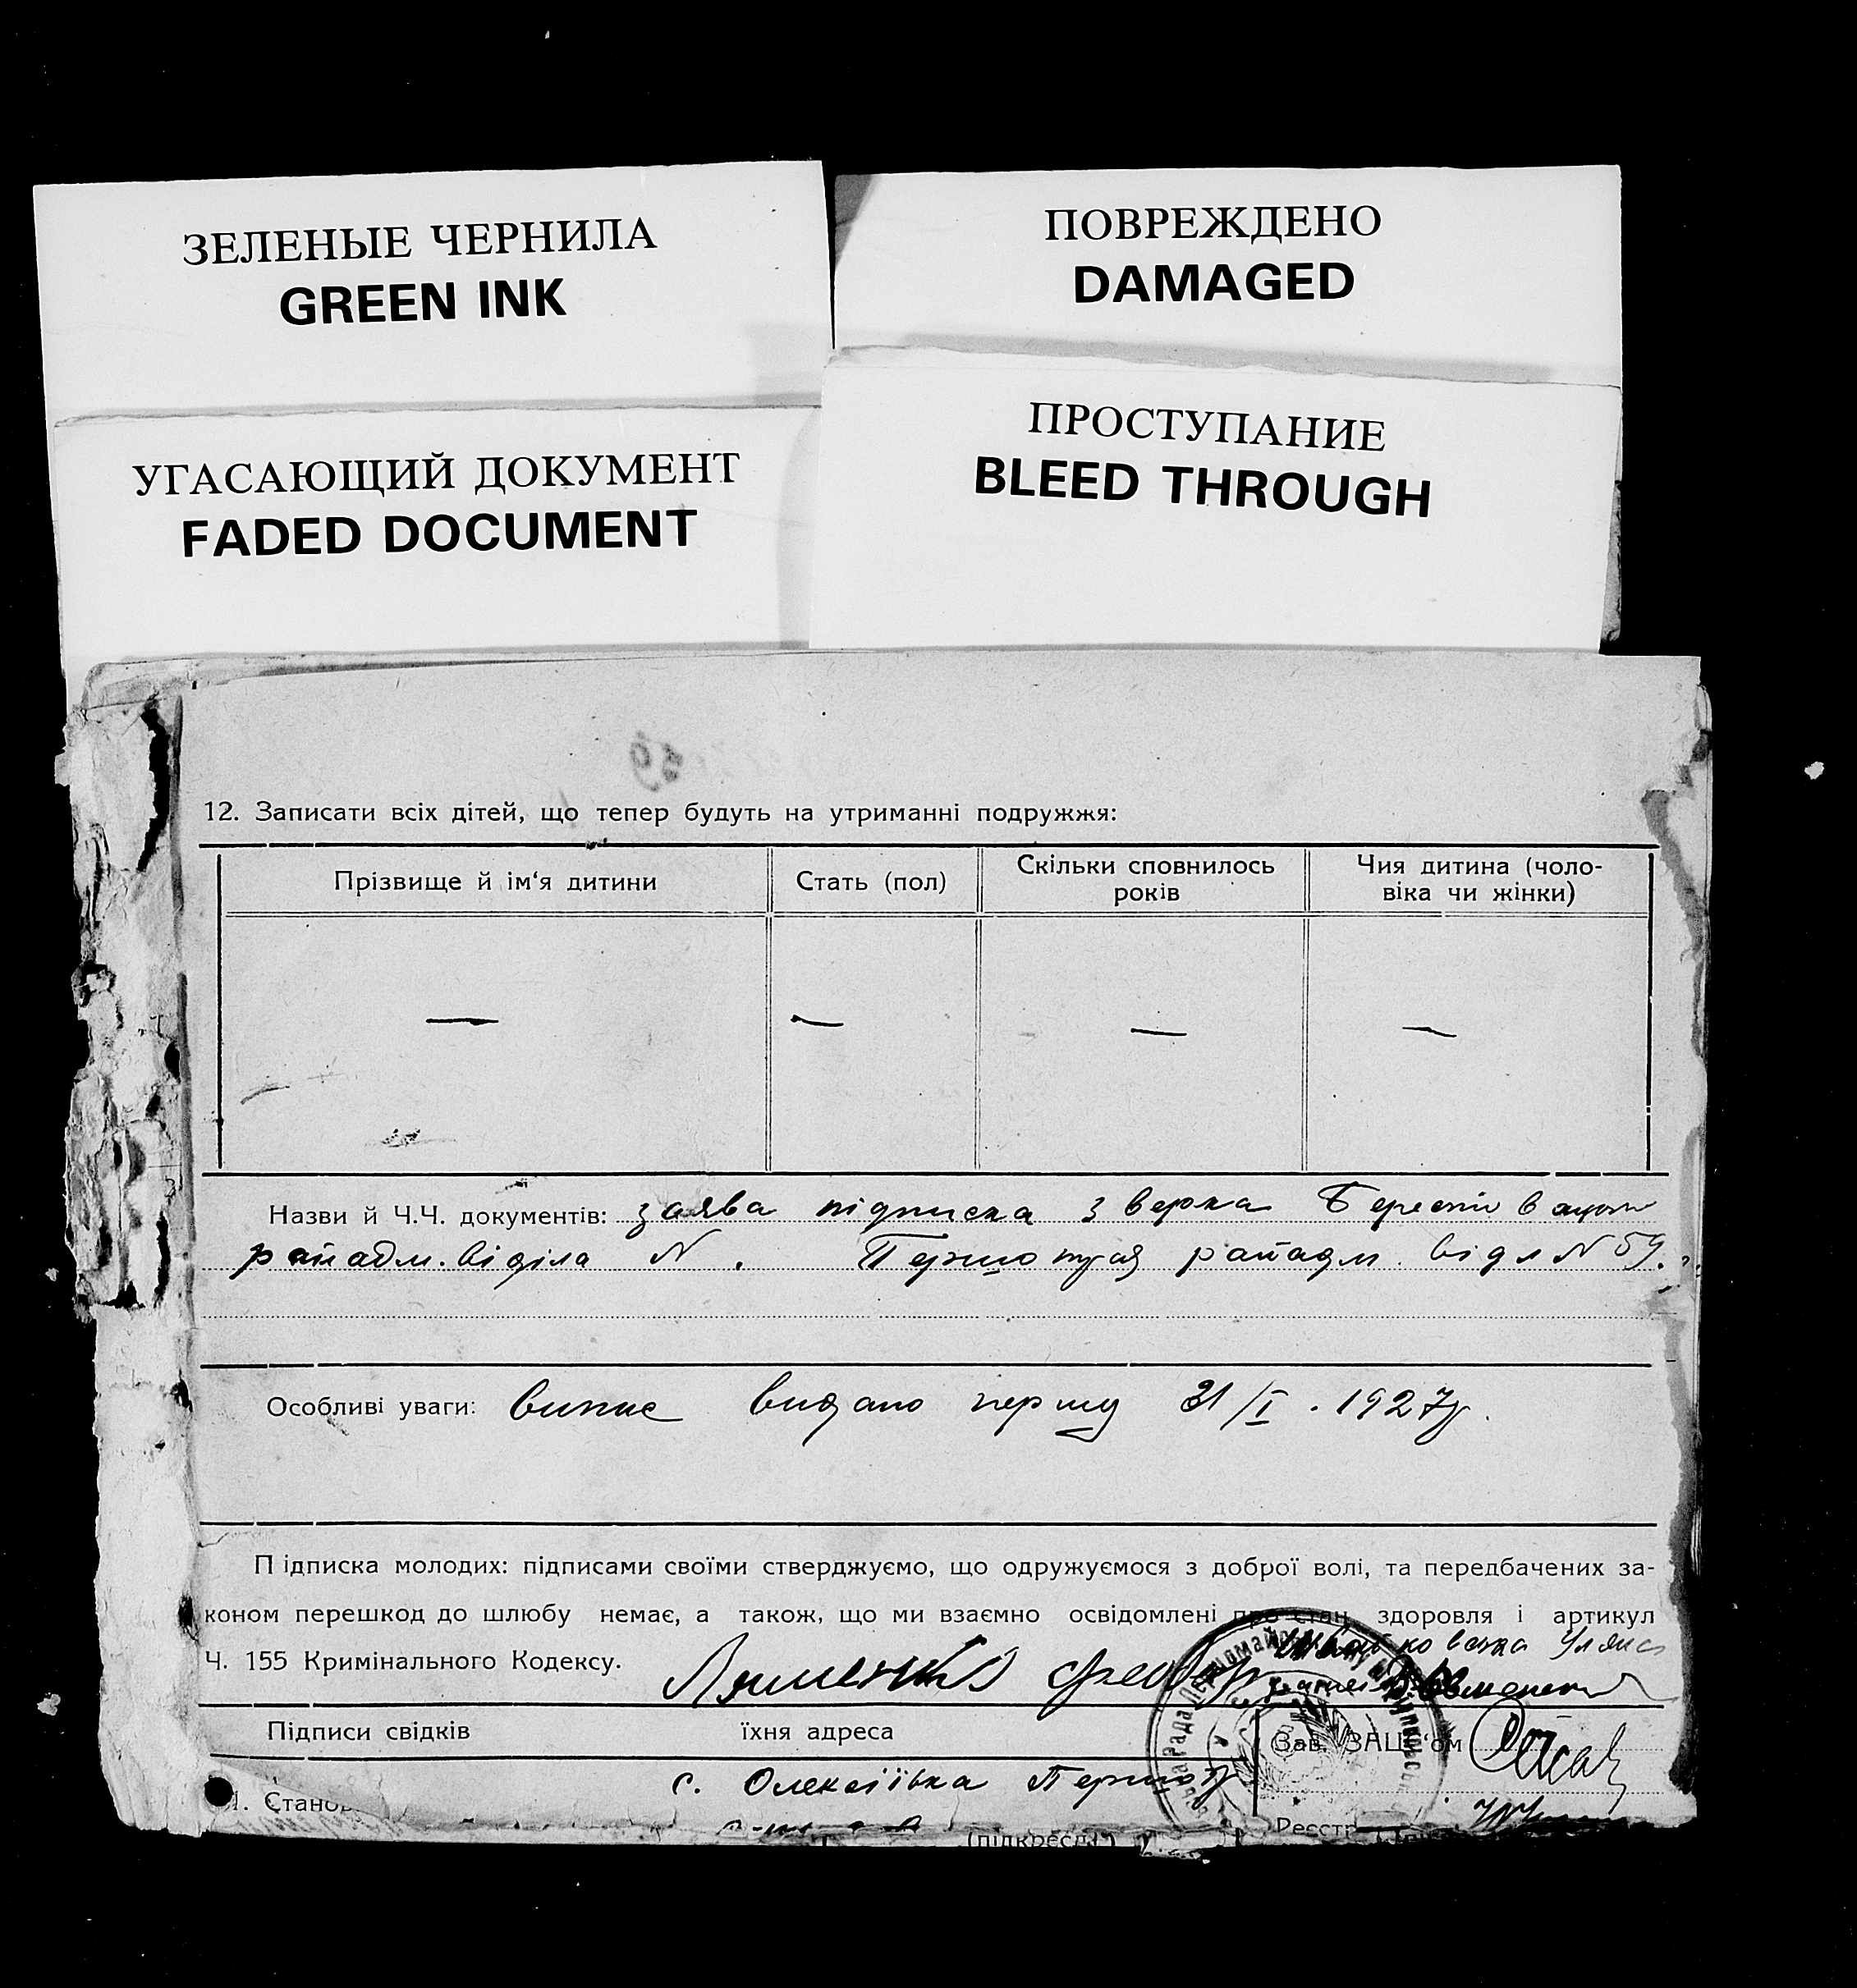 ЗЕЛЕНЫЕ ЧЕРНИЛА
GREEN INK
ПОВРЕЖДЕНО
DAMAGED
УГАСАЮЩИЙ ДОКУМЕНТ
FADED DOCUMENT
ПРОСТУПАНИЕ
BLEED THROUGH
12. Записати всіх дітей, що тепер будуть на утриманні подружжя:
Прізвище й ім‘я дитини
Стать (пол)
Скільки сповнилось
років
Чия дитина (чоло-
віка чи жінки)
— — — —
Назви й Ч.Ч. документів: заява підписка з верха
райадм. віділа N . райадм. відл N 59.
Особливі уваги: випис видано першу 21/I. 1927р.
Підписка молодих: підписами своїми стверджуємо, що одружуємося з доброї волі, та передбачених за-
коном перешкод до шлюбу немає, а також, що ми взаємно освідомлені про стан здоровля і артикул
Ч. 155 Кримінального Кодексу.
Підписи свідків
їхня адреса
Зав. ЗАЦС‘ом
с. Олексіївка
(підкресл.)